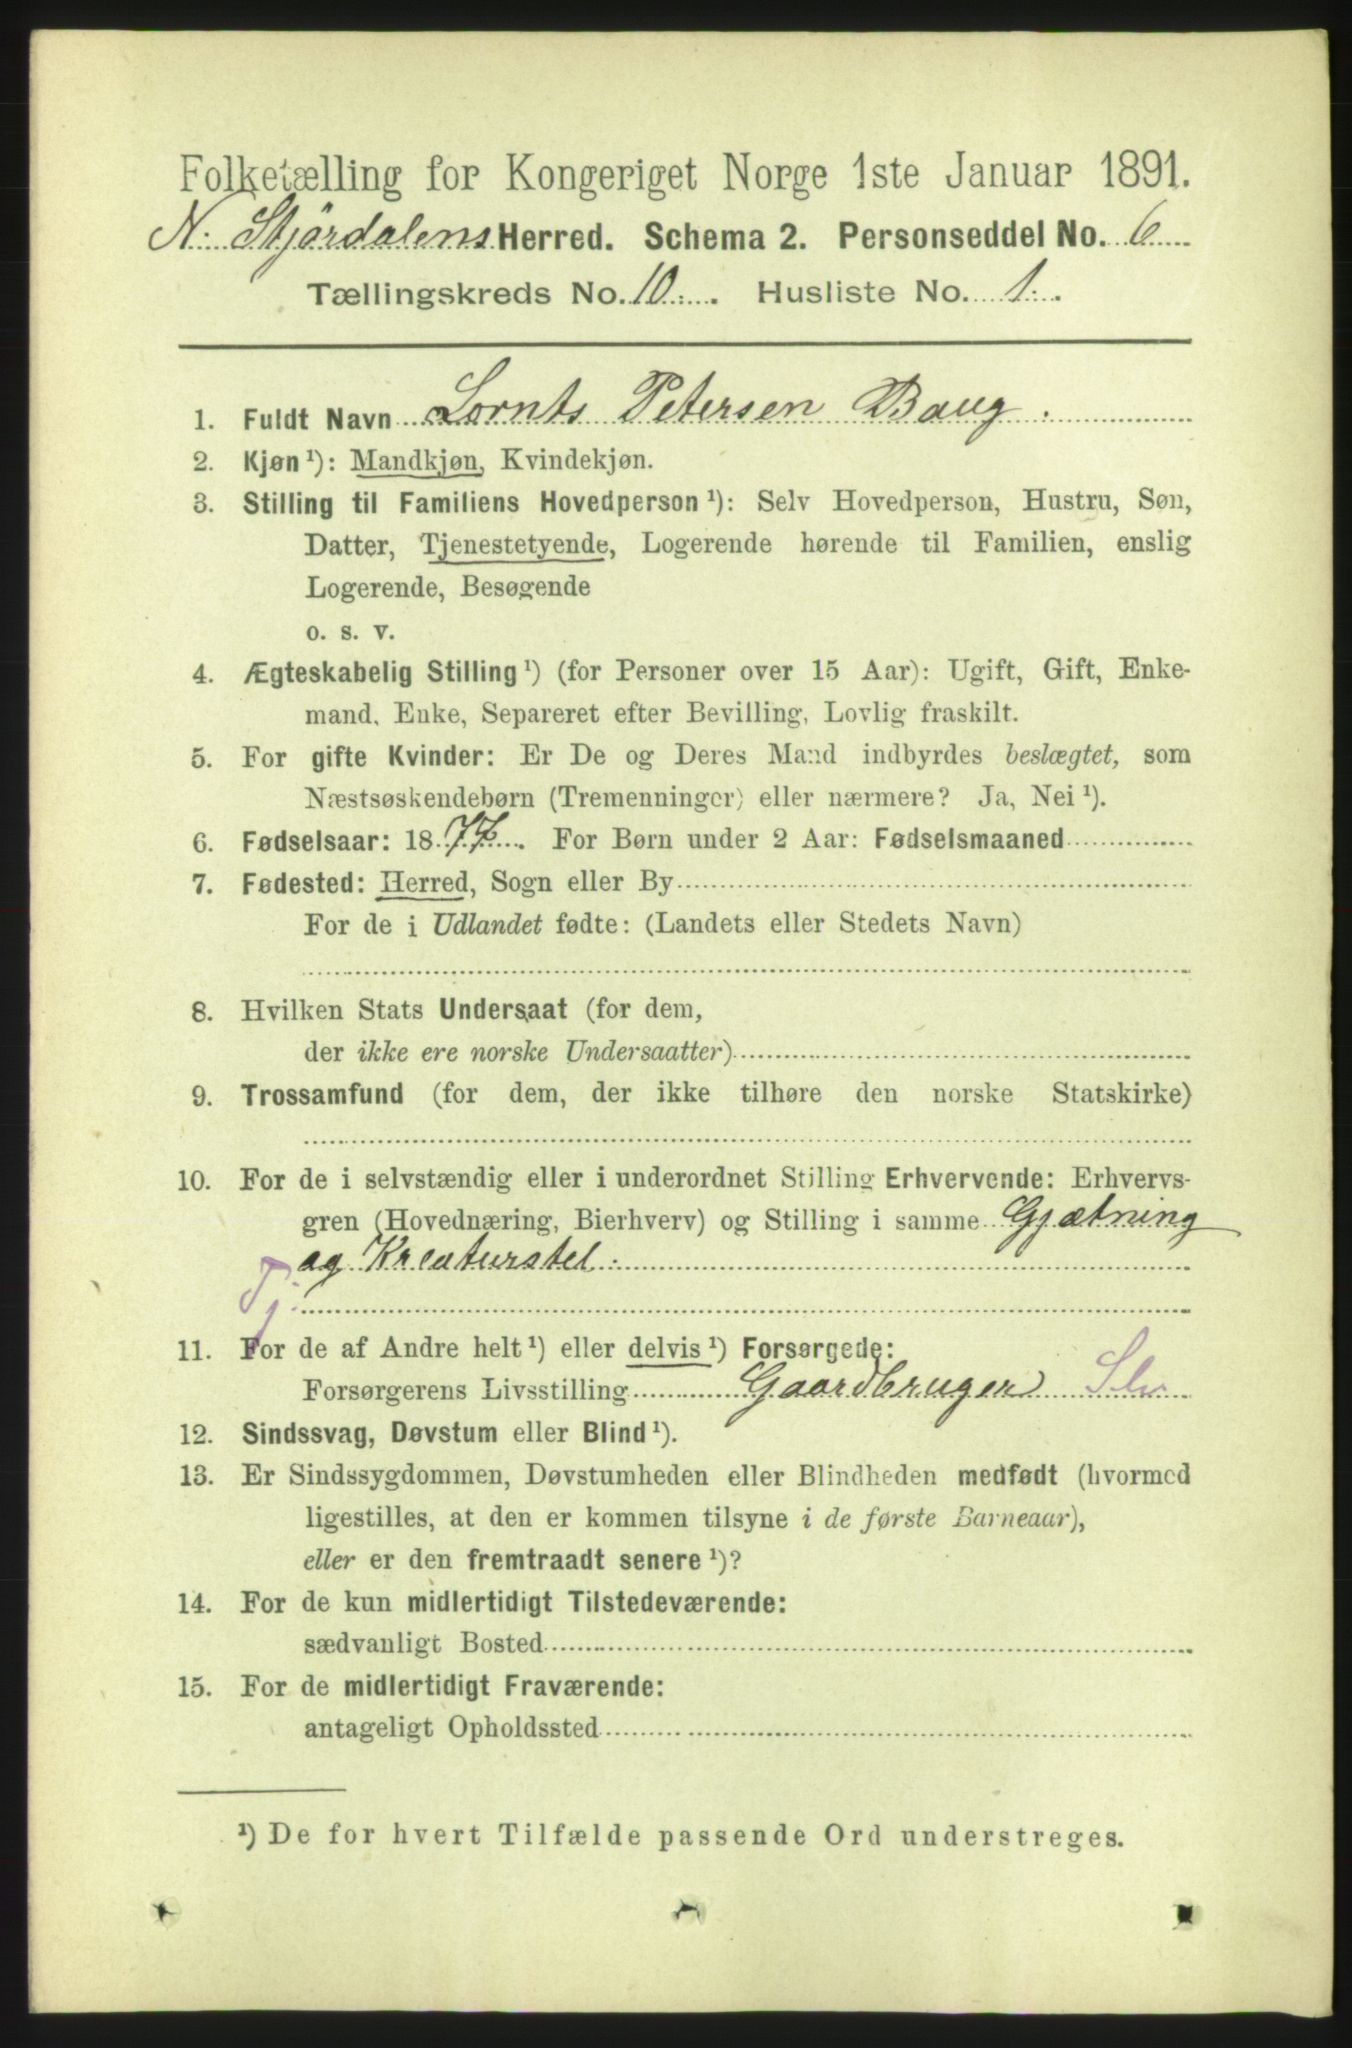 Folketælling for Kongeriget Norge 1ste Januar 1891.
N. Stjørdalens Herred. Schema 2. Personseddel No. 6
Tællingskreds No. 10. Husliste No. 1.
1. Fuldt Navn Lornts Petersen Baug.
2. Kjøn ¹): Mandkjøn, Kvindekjøn.
3. Stilling til Familiens Hovedperson ¹): Selv Hovedperson, Hustru, Søn,
Datter, Tjenestetyende, Logerende hørende til Familien, enslig
Logerende, Besøgende
o. s. v.
4. Ægteskabelig Stilling ¹) (for Personer over 15 Aar): Ugift, Gift, Enke-
mand, Enke, Separeret efter Bevilling, Lovlig fraskilt.
5. For gifte Kvinder: Er De og Deres Mand indbyrdes beslægtet, som
Næstsøskendebørn (Tremenninger) eller nærmere? Ja, Nei ¹).
6. Fødselsaar: 1877. For Børn under 2 Aar: Fødselsmaaned
7. Fødested: Herred, Sogn eller By
For de i Udlandet fødte: (Landets eller Stedets Navn)
8. Hvilken Stats Undersaat (for dem,
der ikke ere norske Undersaatter)
9. Trossamfund (for dem, der ikke tilhøre den norske Statskirke)
10. For de i selvstændig eller i underordnet Stilling Erhvervende: Erhvervs-
gren (Hovednæring, Bierhverv) og Stilling i samme Gjætning
og Kreaturstel.
Tj.
11. For de af Andre helt ¹) eller delvis ¹) Forsørgede:
Forsørgerens Livsstilling Gaardbruger Slv
12. Sindssvag, Døvstum eller Blind ¹).
13. Er Sindssygdommen, Døvstumheden eller Blindheden medfødt (hvormed
ligestilles, at den er kommen tilsyne i de første Barneaar),
eller er den fremtraadt senere ¹)?
14. For de kun midlertidigt Tilstedeværende:
sædvanligt Bosted
15. For de midlertidigt Fraværende:
antageligt Opholdssted
¹) De for hvert Tilfælde passende Ord understreges.